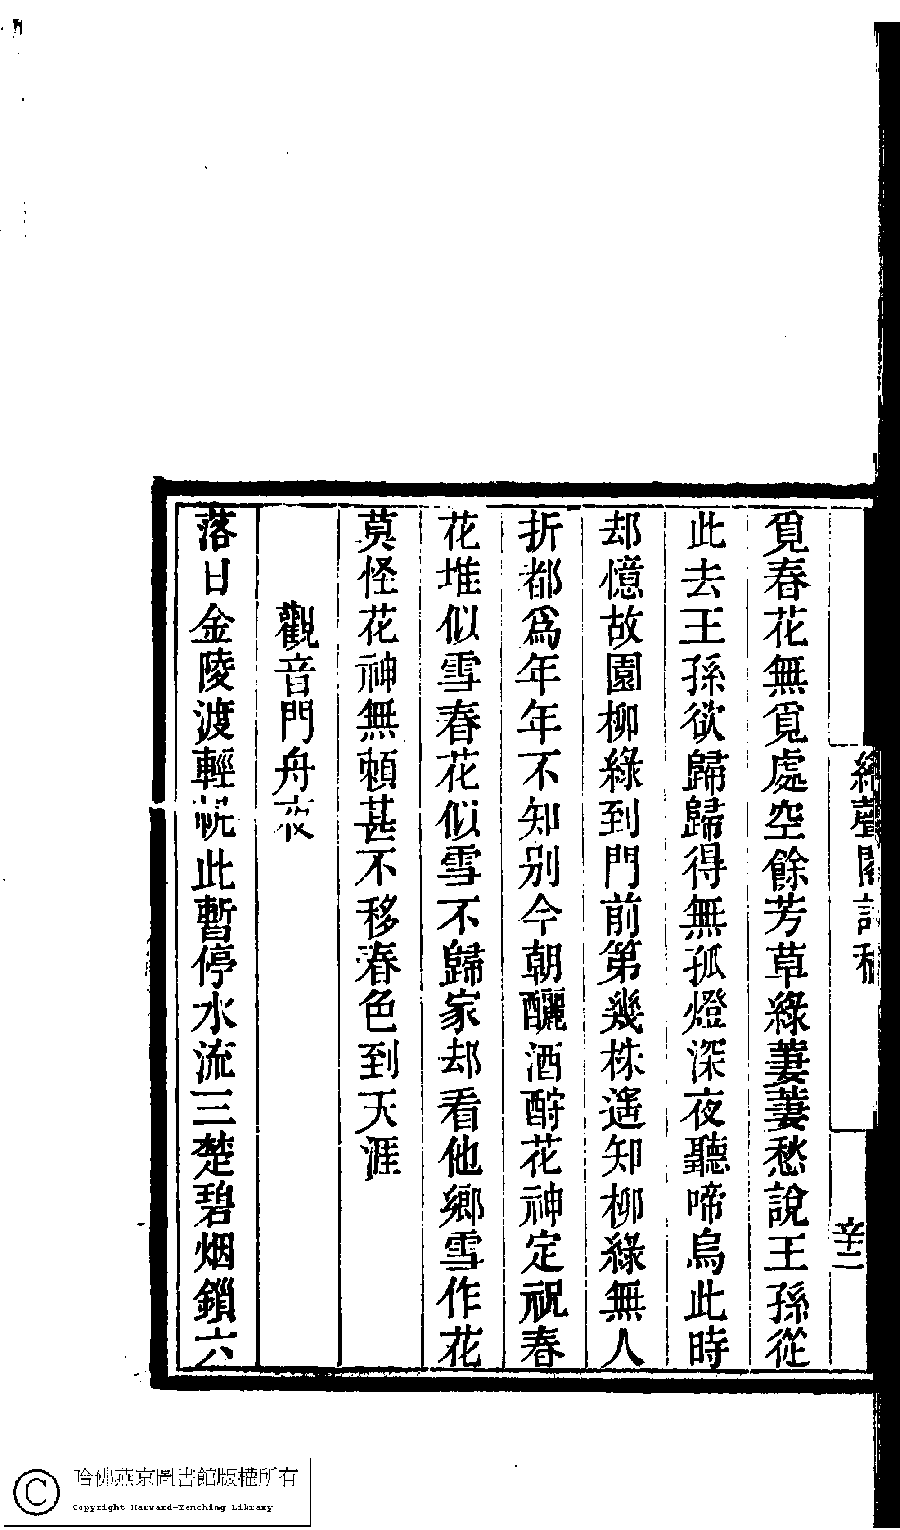 覓春花無覓處空餘芳草綠萋萋愁說王孫從
此去王孫欲歸歸得無孤燈深夜聽啼烏此時
却憶故園柳綠到門前第幾株遥知柳綠無人
折都爲年年不知别今朝釃酒酹花神定祝春
花堆似雪春花似雪不歸家却看他鄉雪作花
莫怪花神無賴甚不移春色到天涯
觀音門舟夜
落日金陵渡輕帆此暫停水流三楚碧烟鎖六
哈佛燕京圖書館版權所有
Copyright Harvard-Yenching Library